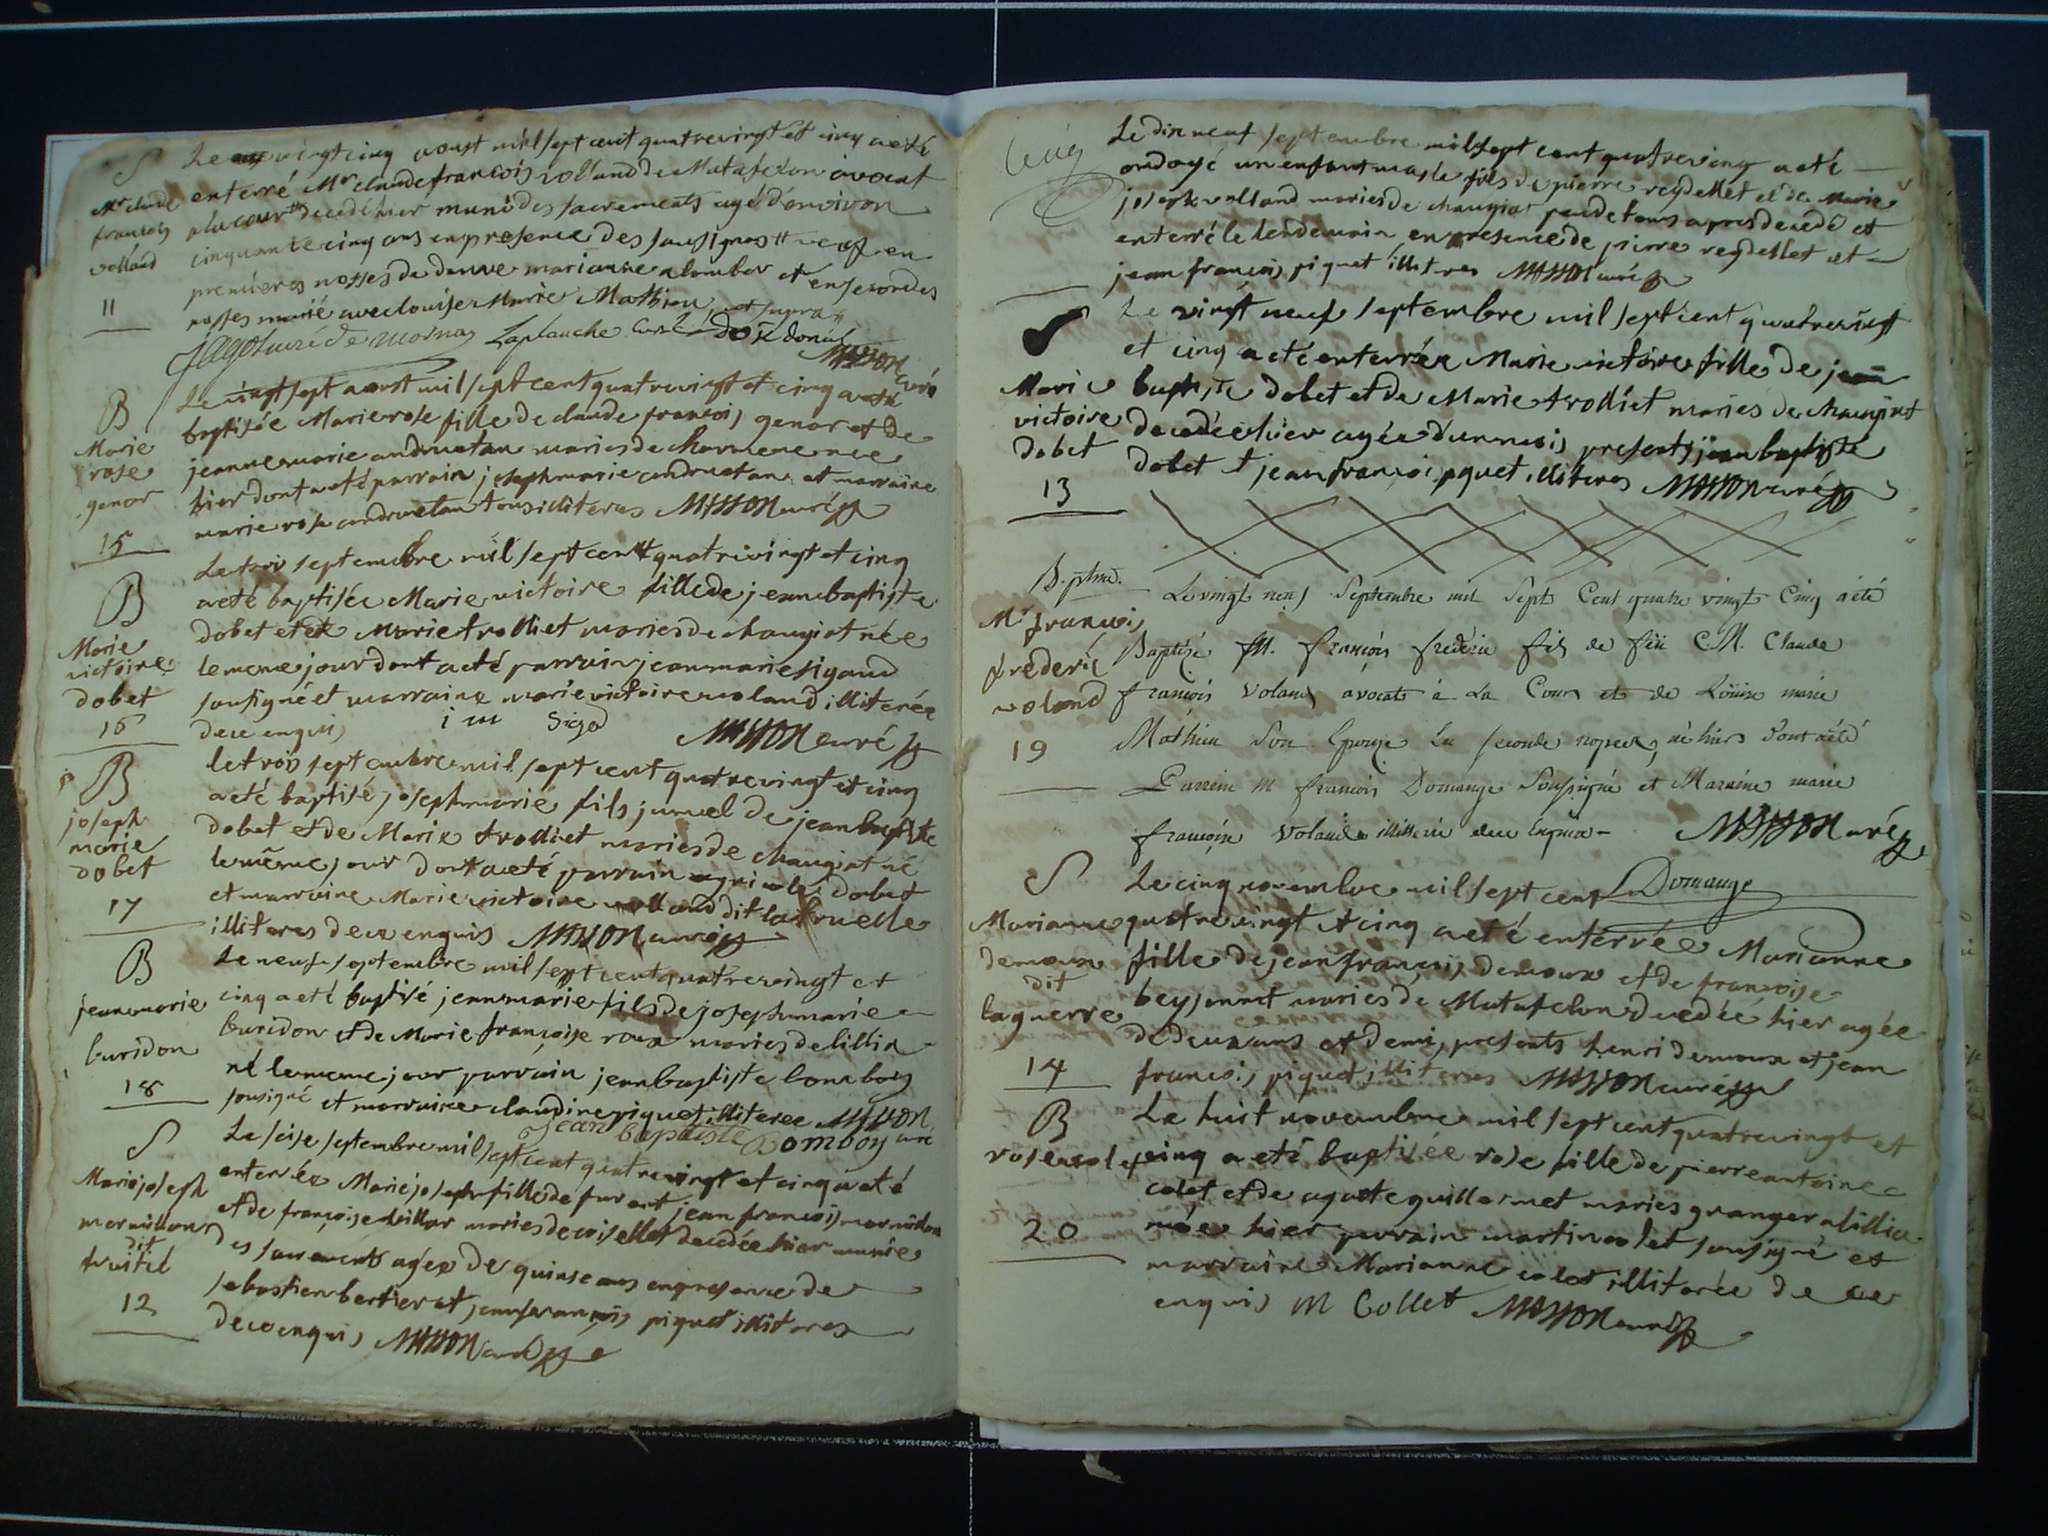 S
Mr claude
francois
volland
11
Le vingt cinq aoust mil sept cent quatrevingt et cinq aeté
enterré Mr claude francois volland de Matafelon avocat
alacour decedé hier muni des sacrements agé d'environ
cinquante cinq ans en presence des sousignes veuf en
premieres nosses de danne marianne alombor et en secondes
nosses marié avec louise Marie Mathieu
Jagot curé de mornay Laplanche curé
MASSON curé
B
Marie
rose
genor
15
Le vingt sept aoust mil sept cent quatrevingt et cinq aeté
baptisée Marie rose fille de claude francois genor et de
jeanne marie andruetan maries de charmene nee
hier dont aeté parrain joseph marie andruetan et marraine
marie rose andruetan tous illiteres MASSON curé
B
Marie
victoire
dobet
16
Le trois septembre mil sept cent quatrevingt et cinq
aeté baptisée Marie victoire fille de jean baptiste
dobet et de Marie trolliet maries de changiat née
le meme jour dont aeté parrain jean marie sigaud
sousigné et marraine marie victoire voland illiterée
dece enquis j m Sigod MASSON curé
B
joseph
marie
dobet
17
le trois septembre mil sept cent quatrevingt et cinq
aeté baptisé joseph marie fils jumel de jean baptiste
dobet et de Marie trolliet maries de changiat né
le même jour dont aeté parrain dobet
et marraine Marie victoire volland dit latruelle
illiteres dece enquis MASSON curé
B
jean marie
buridon
18
Le neuf septembre mil sept cent quatrevingt et
cinq aeté baptisé jean marie fils de joseph marie
buridon et de Marie françoise roux maries de lillia
né le meme jour parrain jean baptiste bomboy
sousigné et marraine claudine piquet illiteree MASSON
Jean baptiste Bomboy curé
S
Marie joseph
mermillon
dit
truitil
12
Le seise septembre mil sept cent quatrevingt et cinq aeté
enterrée Marie joseph fille de jean francois mermillon
et de françoise maries de coisellet decedée hier munie
des sacrements agée de quinse ans en presence de
sebastien bertier et jean francois piquet illiteres
dece enquis MASSON curé
Le dix neuf septembre mil sept cent quatreving aeté
ondoyé un enfant masle fils de pierre reydellet et de Marie
joseph volland maries de changiat peu de tems apres decedé et
enterré le lendemain en presence de pierre reydellet et
jean francois piquet illiteres MASSON curé
Marie
victoire
dobet
13
Le vingt neuf septembre mil sept cent quatrevingt
et cinq aeté enterrée Marie victoire fille de jean
baptiste dobet et de Marie trolliet maries de changiat
decedée hier agée d'un mois presents jean baptiste
dobet et jean francois piquet illiteres MASSON curé
Mr francois
frederic
voland
19
Le vingt neuf Septembre mil Sept Cent quatre vingt Cinq aété
Baptizé M. françois frederic fils de feu C.M. Claude
françois Voland avocat à La Cour et de Loüise marie
Mathieu Son Epouze En seconde nopces, né hiers dont aété
Parrein M françois Domange Sousigné et Maraine marie
françoise Volande illitterée dece enquise MASSON curé
Domange
S
Marianne
demoux
dit
laguerre
14
Le cinq novembre mil sept cent
quatrevingt et cinq aeté enterrée Marianne
fille de jean francois demoux et de françoise
beyssonnet maries de Matafelon decedée hier agée
de deux ans et demi, presents henri demoux et jean
francois piquet illiteres MASSON curé
B
rose colet
20
Le huit novembre mil sept cent quatrevingt et
cinq aeté baptisée rose fille de pierre antoine
colet et de agate guillermet maries granger a lillia
née hier parrain martin colet sousigné et
marraine Marianne colet illiterée de ce
enquis M Collet MASSON curé